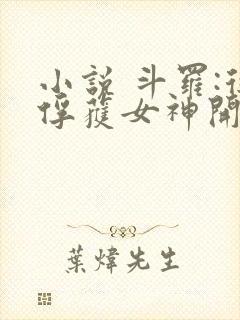 小說 斗羅:從
俘獲女神開
葉煒先生